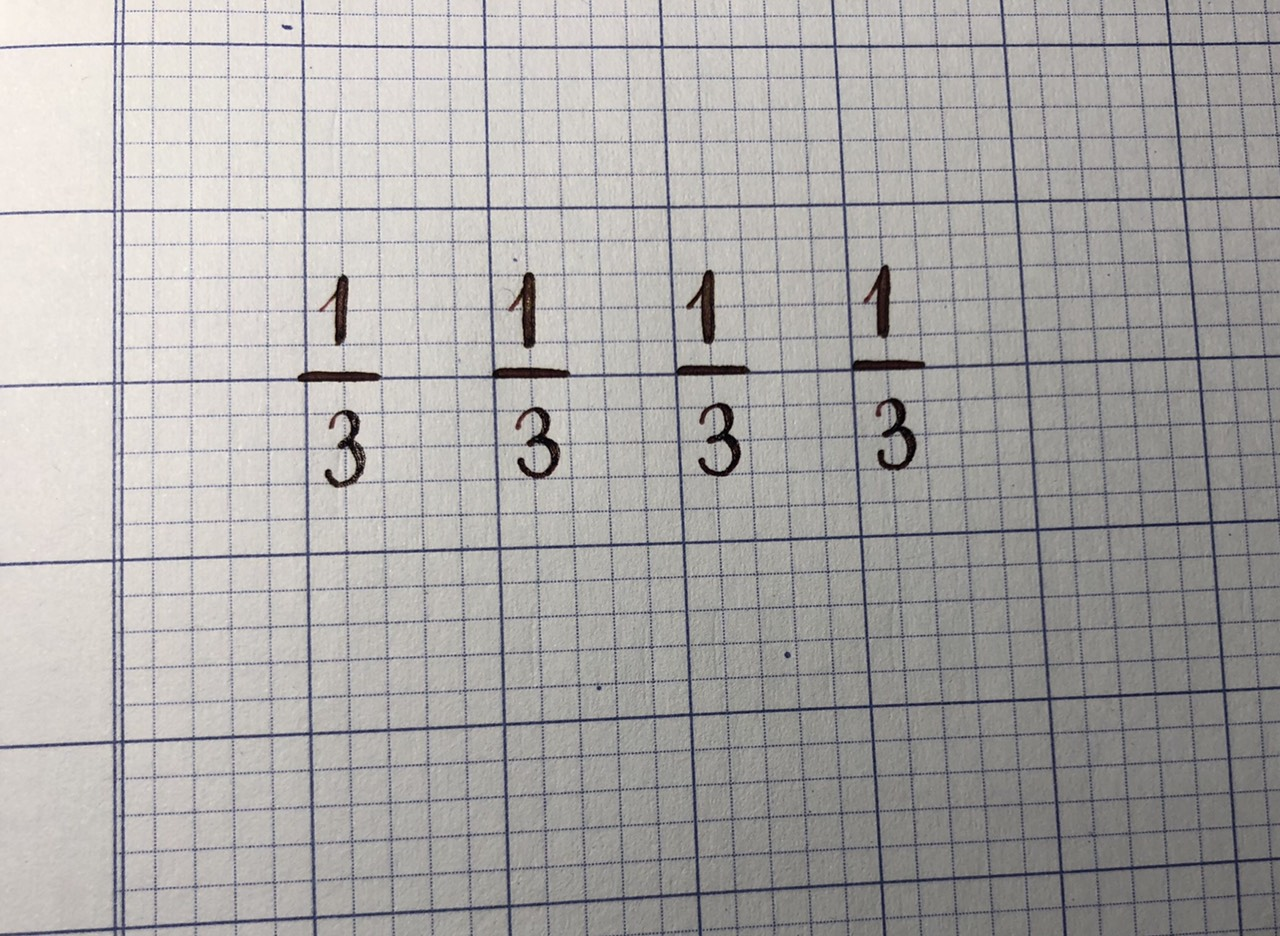 1/3 1/3 1/3 1/3